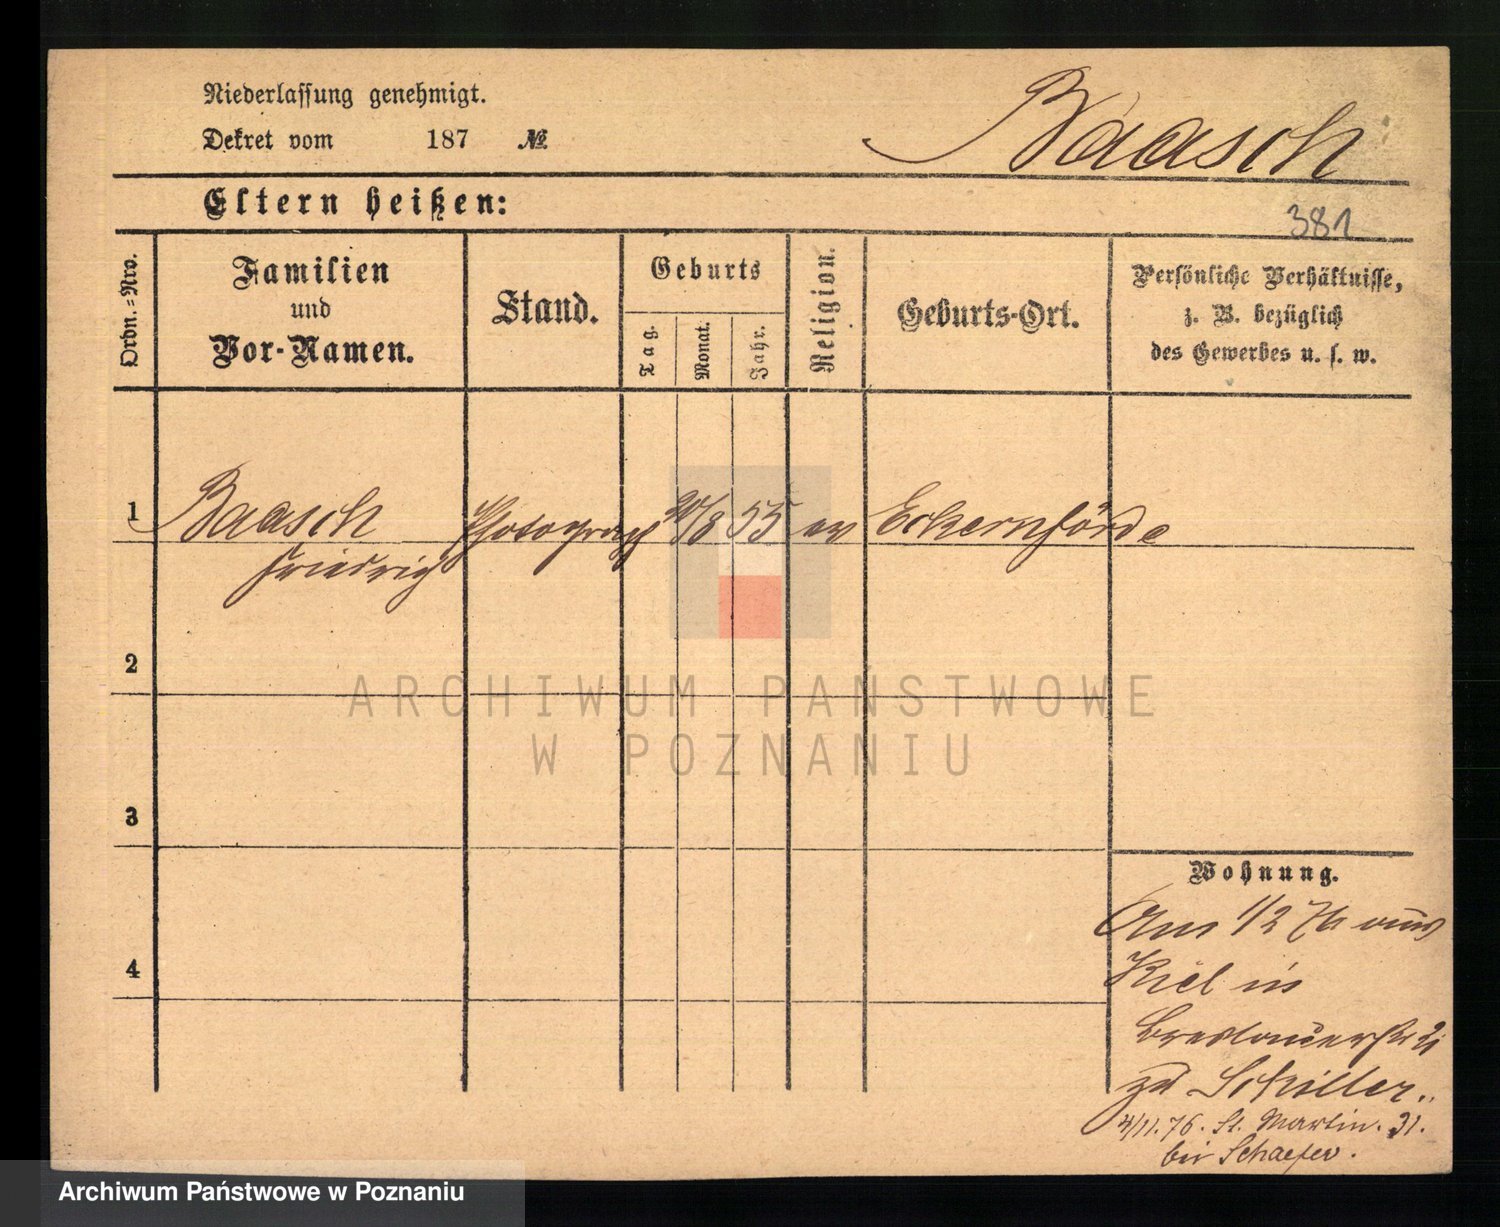 Niederlassung genehmigt.
Dekret vom 187 №
Baasch
Eltern heißen:
381
Ordn.=Nro.
Familien
und
Vor-Namen.
Stand.
Geburts
Tag.
Monat.
Jahr.
Religion.
Geburts-Ort.
Persönliche Verhältnisse,
z. B. bezüglich
des Gewerbes u. s. w.
1 Baasch Photograph 20/8 55 ev Eckernförde
Friedrich
2
ARCHIWUM PAŃSTWOWE
W POZNANIU
3
Wohnung.
Am 1/2 76 aus
Kiel in
4
Breslauerstr
zu Schiller.
4/11.76. St. Martin. 31.
bei Schaefer.
Archiwum Państwowe w Poznaniu